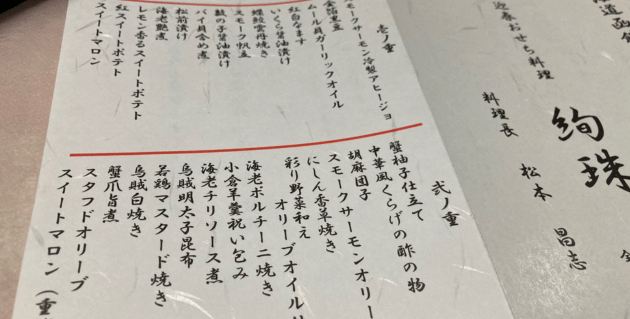 道函館
迎春おせち料理
絢珠
料理長 松本 昌志
壱ノ重
スモークサーモン冷製アヒージョ
ムール貝ガーリックオイル
金箔黒豆
紅白なます
いくら醤油漬け
螺鮫雲母焼き
スモーク帆立
鮭の子醤油漬け
バイ貝含め煮
松前漬け
海老艶煮
レモン香るスイートポテト
紅スイートポテト
スイートマロン
弐ノ重
蟹柚子仕立て
中華風くらげの酢の物
胡麻団子
スモークサーモンオリー
にしん香草焼き
彩り野菜和え
オリーブオイル
海老ポルチーニ焼き
小倉羊羹祝い包み
海老チリソース煮
烏賊明太子昆布
若鶏マスタード焼き
烏賊白焼き
蟹爪旨煮
スタフドオリーブ
スイートマロン（重